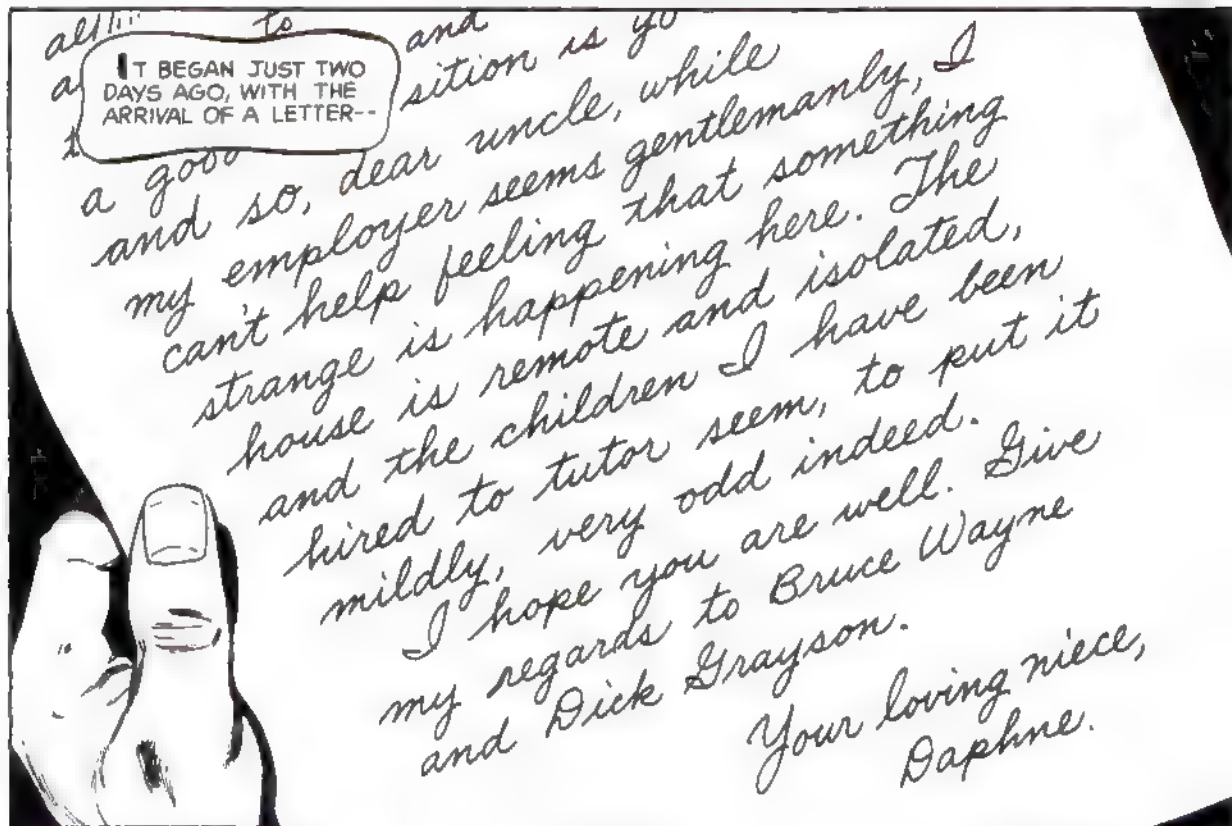 IT BEGAN JUST TWO
DAYS AGO, WITH THE
ARRIVAL OF A LETTER--
to and
sition is
a good
and so, dear uncle, while
my employer seems gentlemanly, I
can't help feeling that something
strange is happening here. The
house is remote and isolated,
and the children I have been
hired to tutor seem, to put it
mildly, very odd indeed.
I hope you are well. Give
my regards to Bruce Wayne
and Dick Grayson.
Your loving niece,
Daphne.